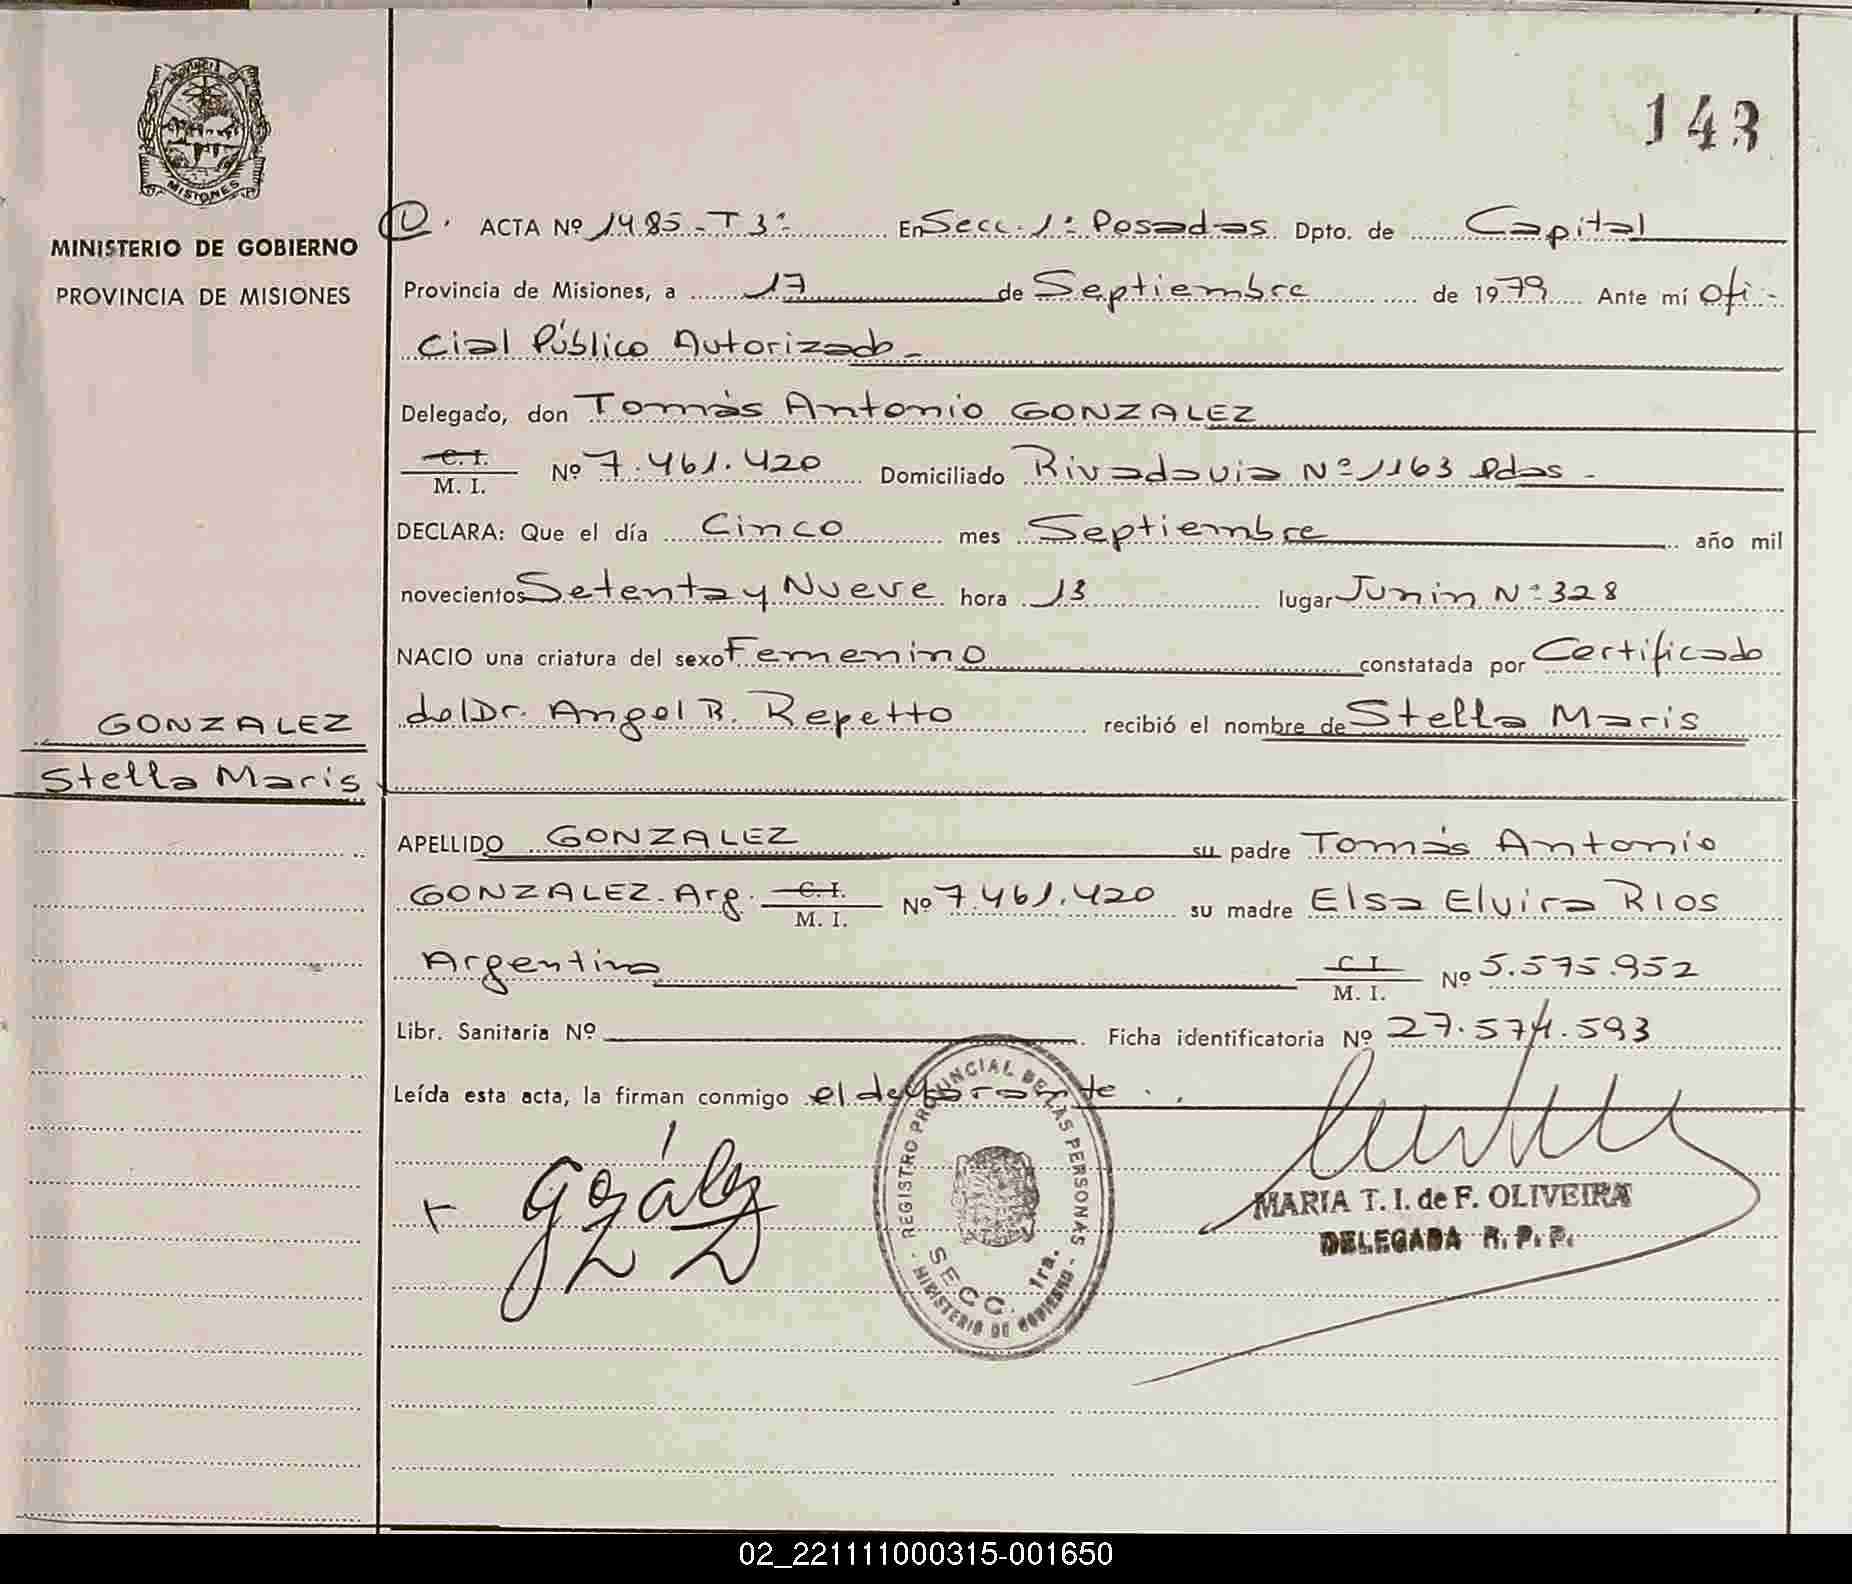 143
PROVINCIA DE
MISIONES
MINISTERIO DE GOBIERNO
PROVINCIA DE MISIONES
ACTA Nº 1485 - T 3º En Secc. 1ª Posadas Dpto. de Capital
Provincia de Misiones, a 17 de Septiembre de 1979 Ante mí Ofi-
cial Público Autorizado -
Delegado, don Tomás Antonio GONZALEZ
C. I.
M. I. Nº 7.461.420 Domiciliado Rivadavia Nº 1163 Pdas -
DECLARA: Que el día Cinco mes Septiembre año mil
novecientos Setenta y Nueve hora 13 lugar Junin Nº 328
NACIO una criatura del sexo Femenino constatada por Certificado
del Dr. Angel R. Repetto recibió el nombre de Stella Maris
GONZALEZ
Stella Maris
APELLIDO GONZALEZ su padre Tomás Antonio
GONZALEZ. Arg. C. I. M. I. Nº 7.461.420 su madre Elsa Elvira RIOS
Argentina C. I. M. I. Nº 5.575.952
Libr. Sanitaria Nº Ficha identificatoria Nº 27.574.593
Leída esta acta, la firman conmigo el declarante . .
REGISTRO PROVINCIAL DE LAS PERSONAS
SECC. 1ra.
- MINISTERIO DE GOBIERNO -
MARIA T. I. de F. OLIVEIRA
DELEGADA R. P. P.
02_221111000315-001650